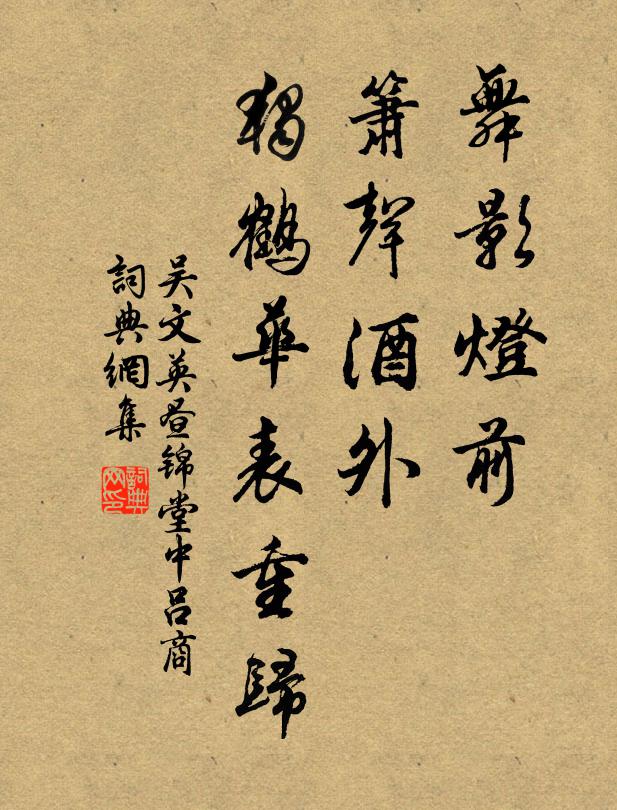 舞影燈前
簫聲酒外
獨鶴華表重歸
吴文英昼锦堂中吕商
詞典網集
詞典
网印